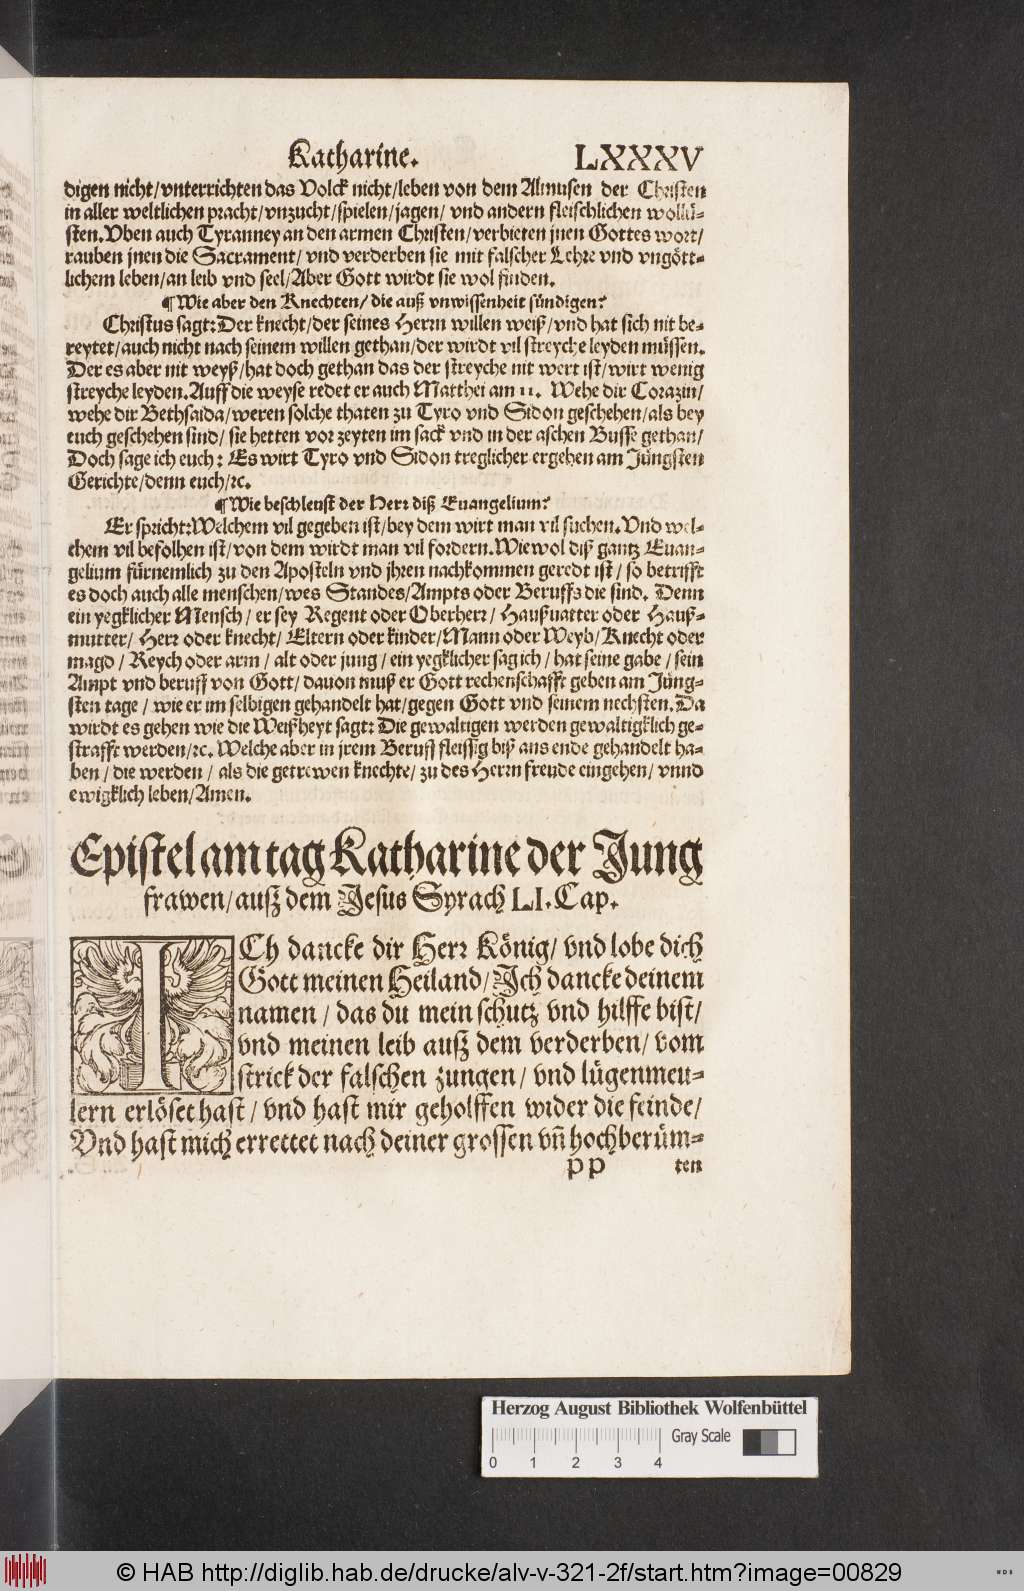 Katharine. LXXXV
digen nicht/vnterrichten das Volck nicht/leben von dem Almusen der Christen
in aller weltlichen pracht/vnzucht/spielen/jagen/ vnd andern fleischlichen wollü-
sten. Vben auch Tyranney an den armen Christen/verbieten jnen Gottes wort/
rauben jnen die Sacrament/ vnd verderben sie mit falscher Lehre vnd vngött-
lichem leben/an leib vnd seel/Aber Gott wirdt sie wol finden.
¶ Wie aber den Knechten/ die auß vnwissenheit sündigen?
Christus sagt: Der knecht/der seines Herrn willen weiß/vnd hat sich nit be-
reytet/auch nicht nach seinem willen gethan/der wirdt vil streyche leyden müssen.
Der es aber nit weyß/hat doch gethan das der streyche nit wert ist/wirt wenig
streyche leyden. Auff die weyse redet er auch Matthei am 11. Wehe dir Corazin/
wehe dir Bethsaida/weren solche thaten zu Tyro vnd Sidon geschehen/als bey
euch geschehen sind/ sie hetten vor zeyten im sack vnd in der aschen Busse gethan/
Doch sage ich euch: Es wirt Tyro vnd Sidon treglicher ergehen am Jüngsten
Gerichte/denn euch/ꝛc.
¶ Wie beschleust der Herr diß Euangelium?
Er spricht: Welchem vil gegeben ist/bey dem wirt man vil suchen. Vnd wel-
chem vil befolhen ist/von dem wirdt man vil fordern. Wiewol diß gantz Euan-
gelium fürnemlich zu den Aposteln vnd jhren nachkommen geredt ist/ so betrifft
es doch auch alle menschen/wes Standes/Ampts oder Beruffs die sind. Denn
ein yegklicher Mensch/ er sey Regent oder Oberherr/ Haußuatter oder Hauß-
mutter/ Herr oder knecht/ Eltern oder kinder/Mann oder Weyb/ Knecht oder
magd / Reych oder arm / alt oder jung / ein yegklicher sag ich / hat seine gabe / sein
Ampt vnd beruff von Gott/ dauon muß er Gott rechenschafft geben am Jüng-
sten tage / wie er im selbigen gehandelt hat/gegen Gott vnd seinem nechsten. Da
wirdt es gehen wie die Weißheyt sagt: Die gewaltigen werden gewaltigklich ge-
strafft werden/ꝛc. Welche aber in jrem Beruff fleissig biß ans ende gehandelt ha-
ben / die werden / als die getrewen knechte/ zu des Herrn freude eingehen/ vnnd
ewigklich leben/Amen.
Epistel am tag Katharine der Jung
frawen/auß dem Jesus Syrach LI. Cap.
ICh dancke dir Herr König/ vnd lobe dich
Gott meinen Heiland/Ich dancke deinem
namen / das du mein schutz vnd hilffe bist/
vnd meinen leib auß dem verderben/ vom
strick der falschen zungen/ vnd lügenmeu-
lern erlöset hast / vnd hast mir geholffen wider die feinde/
Vnd hast mich errettet nach deiner grossen vñ hochberüm-
pp ten
Herzog August Bibliothek Wolfenbüttel
Gray Scale
0 1 2 3 4
© HAB http://diglib.hab.de/drucke/alv-v-321-2f/start.htm?image=00829